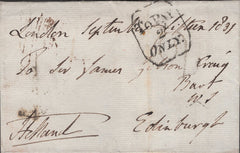 London September fifteen 1831
TO BE
2
ONLY.
To Sir James Gibson Craig
Bart
Edinburgh
Holland